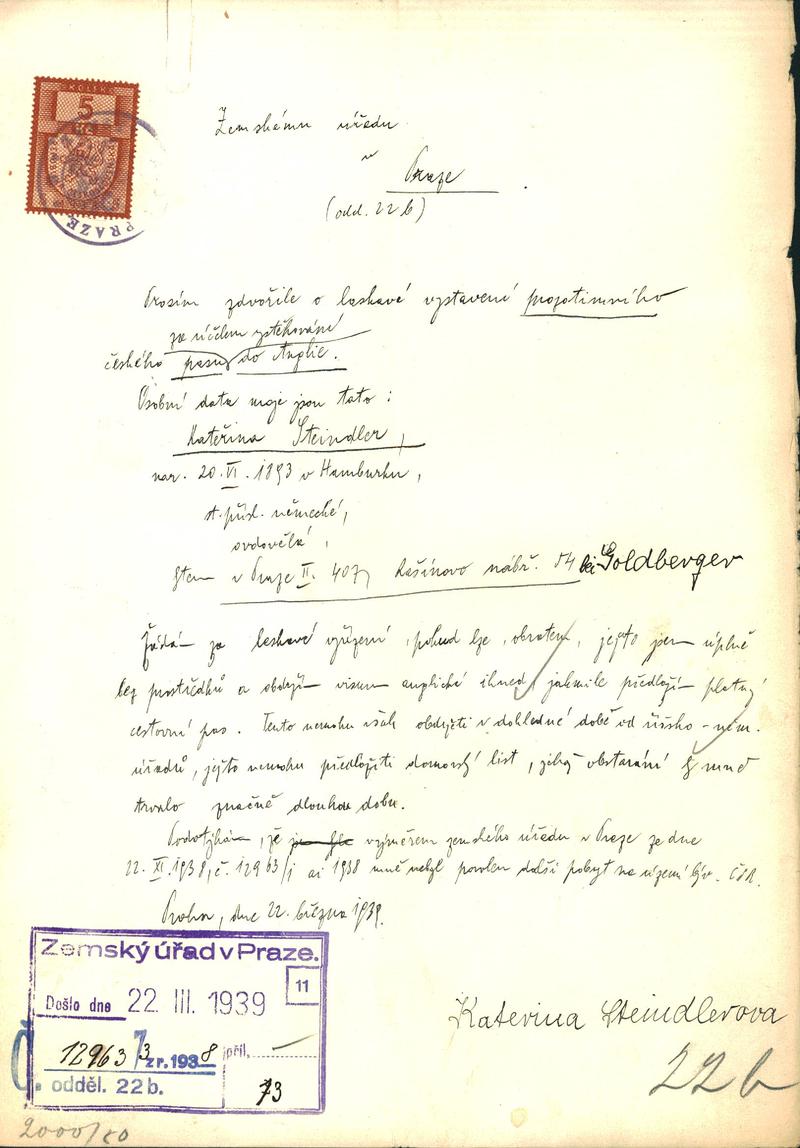 KOLEK
5
Kč
PRAZE
Zemskému úřadu
v
Praze
(odd. 22 b)
Prosím zdvořile o laskavé vystavení prozatimního
za účelem vystěhování
českého pasu do Anglie.
Osobní data moje jsou tato:
Kateřina Steindler,
nar. 20. VI. 1893 v Hamburku,
st. přísl. německé,
ovdovělá,
bytem v Praze II. 407, Rašínovo nábř. 54 bei Goldberger
Žádám za laskavé vyřízení, pokud lze, obratem, ježto jsem úplně
bez prostředků a obdržím visum anglické ihned, jakmile předložím platný
cestovní pas. Tento nemohu však obdržeti v dohledné době od říšsko-něm.
úřadů, ježto nemohu předložiti domovský list, jehož obstarání by mně
trvalo značně dlouhou dobu.
Podotýkám, že výměrem zemského úřadu v Praze ze dne
22. XI. 1938, č. 12963/1 ai 1938 mně nebyl povolen další pobyt na území býv. ČSR.
Praha, dne 22. března 1939.
Zemský úřad v Praze.
11
Došlo dne 22. III. 1939
Č. 12963/3 z r. 1938 příl. —
odděl. 22 b. 73
Katerina Steindlerova
22 b
2000/80